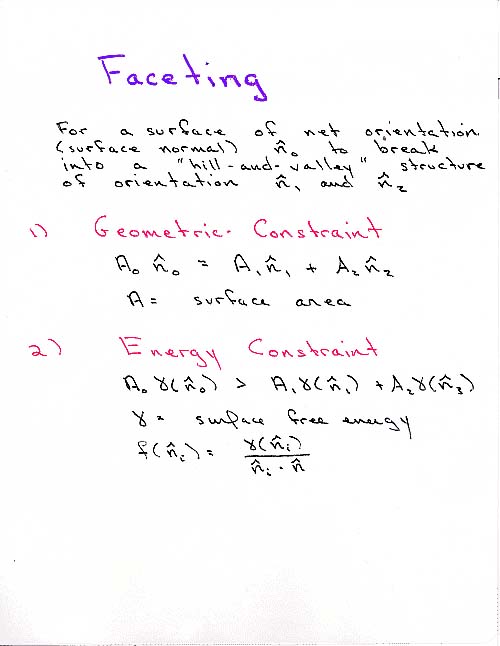 Faceting
For a surface of net orientation
(surface normal) n̂₀ to break
into a "hill-and-valley" structure
of orientation n̂₁ and n̂₂
1) Geometric Constraint
A₀ n̂₀ = A₁ n̂₁ + A₂ n̂₂
A = surface area
2) Energy Constraint
A₀ γ(n̂₀) > A₁ γ(n̂₁) + A₂ γ(n̂₃)
γ = surface free energy
f(n̂ᵢ) = γ(n̂ᵢ) / n̂ᵢ · n̂